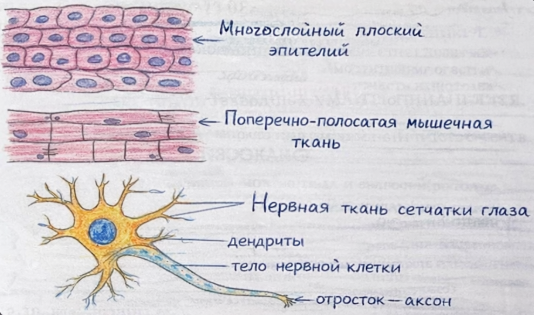 Многослойный плоский
эпителий
Поперечно-полосатая мышечная
ткань
Нервная ткань сетчатки глаза
дендриты
тело нервной клетки
отросток — аксон